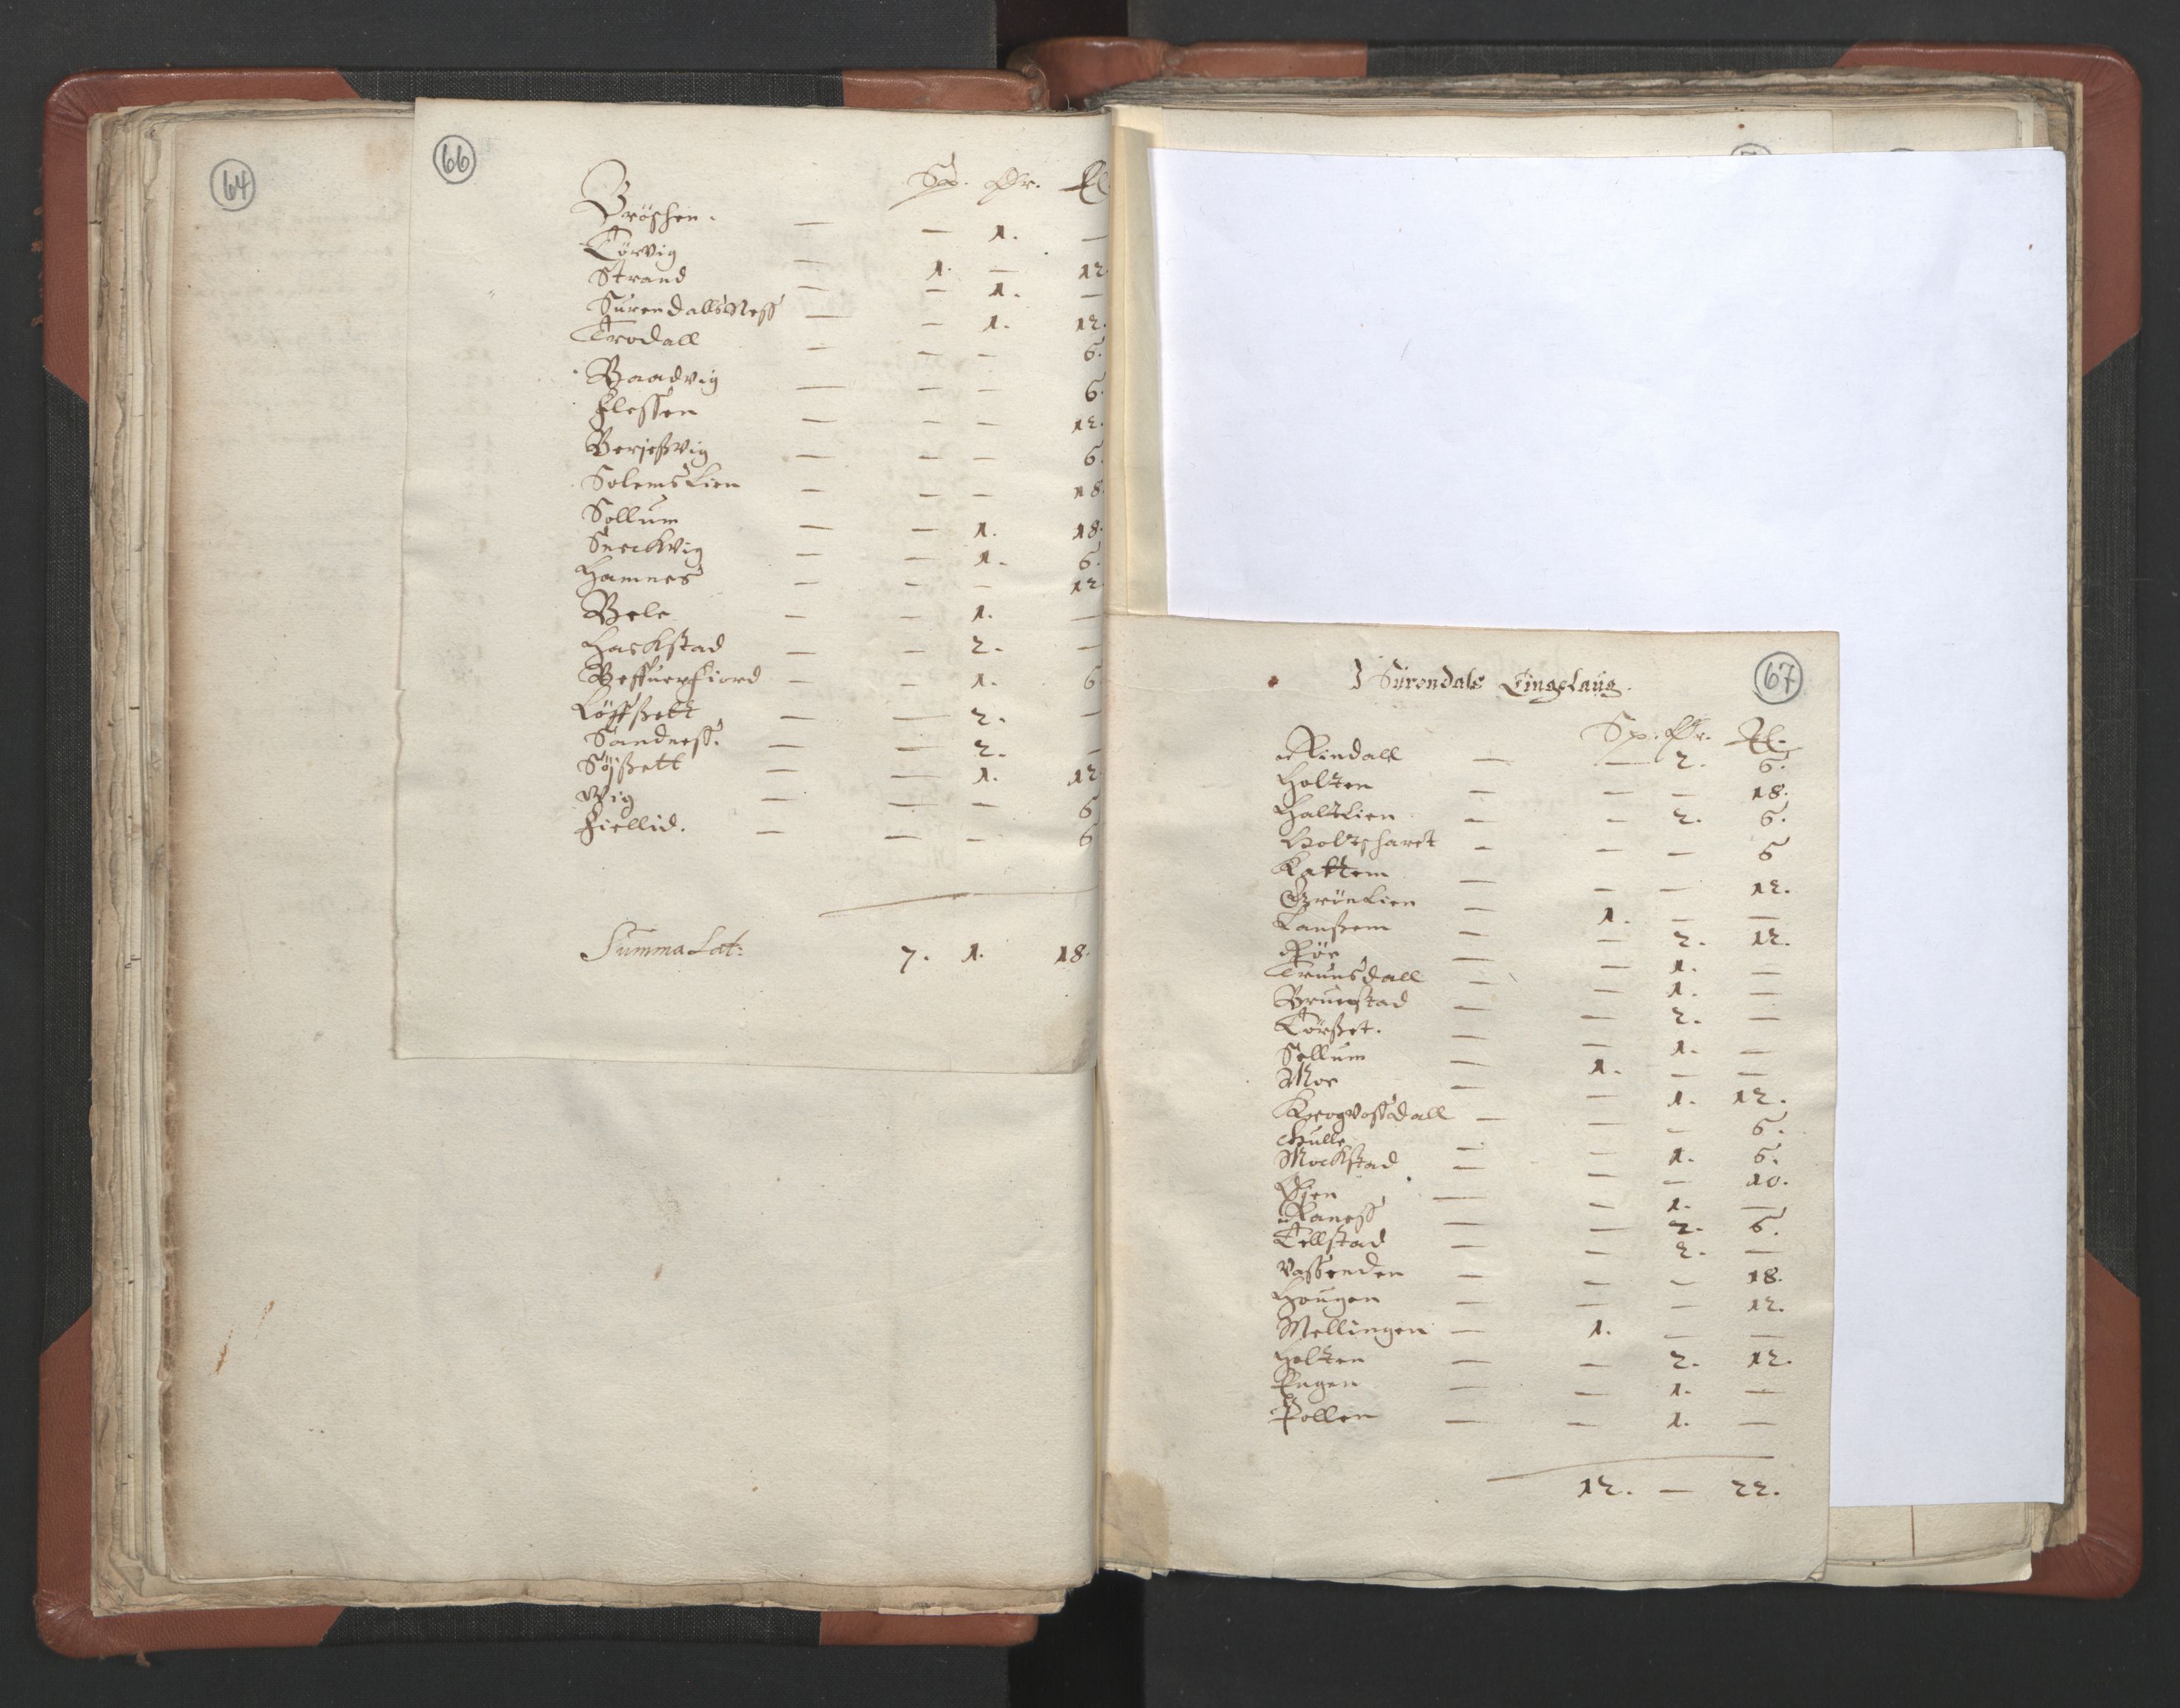 64
66
Sp. Ør.
Bröschen. — — 1. —
Törvig — 1. — 12
Strand — — 1. —
SurendallsNess — — 1. 12.
Trodall — — — 6.
Baadvig — — — 6.
Flessen — — — 12.
Berjesvig — — — 6.
SolemsLien — — — 18.
Sollum — — 1. 18.
Sneckvig — — 1. 6.
Hamnes — — — 12
Bele — — 1. —
Hackstad — — 2. —
Beffuerfiord — — 1. 6
Löffßett — — 2. —
Sandness. — — 2. —
Söjßett — — 1. 12
Wig — — — 6
Fiellid. — — — 6
Summa Lat: 7. 1. 18.
67
I Surendals Tingelaug.
Sp. Ør. Ml.
Rindall — — 2. 6.
Holten — — — 18.
HaltLien — — 2. 6.
Holtscharet — — — 6
Kattem — — — 12.
GrönLien — 1. — —
Lanßem — — 2. 12.
Röe — — 1. —
Trunsdall — — 1. —
Brunstad — — 2. —
Törßet. — — 1. —
Sollum — 1. — —
Moe — — 1. 12.
Krogvossdall — — — 6.
Hulle — — 1. 6.
Mockstad — — — 10.
Öjen — — 1. —
Raness — — 2. 6.
Tellstad — — 2. —
Vassenden — — — 18.
Hougen — — — 12.
Mellingen — 1. — —
Holten — — 2. 12.
Engen — — 1. —
Pollen — — 1. —
12. — 22.